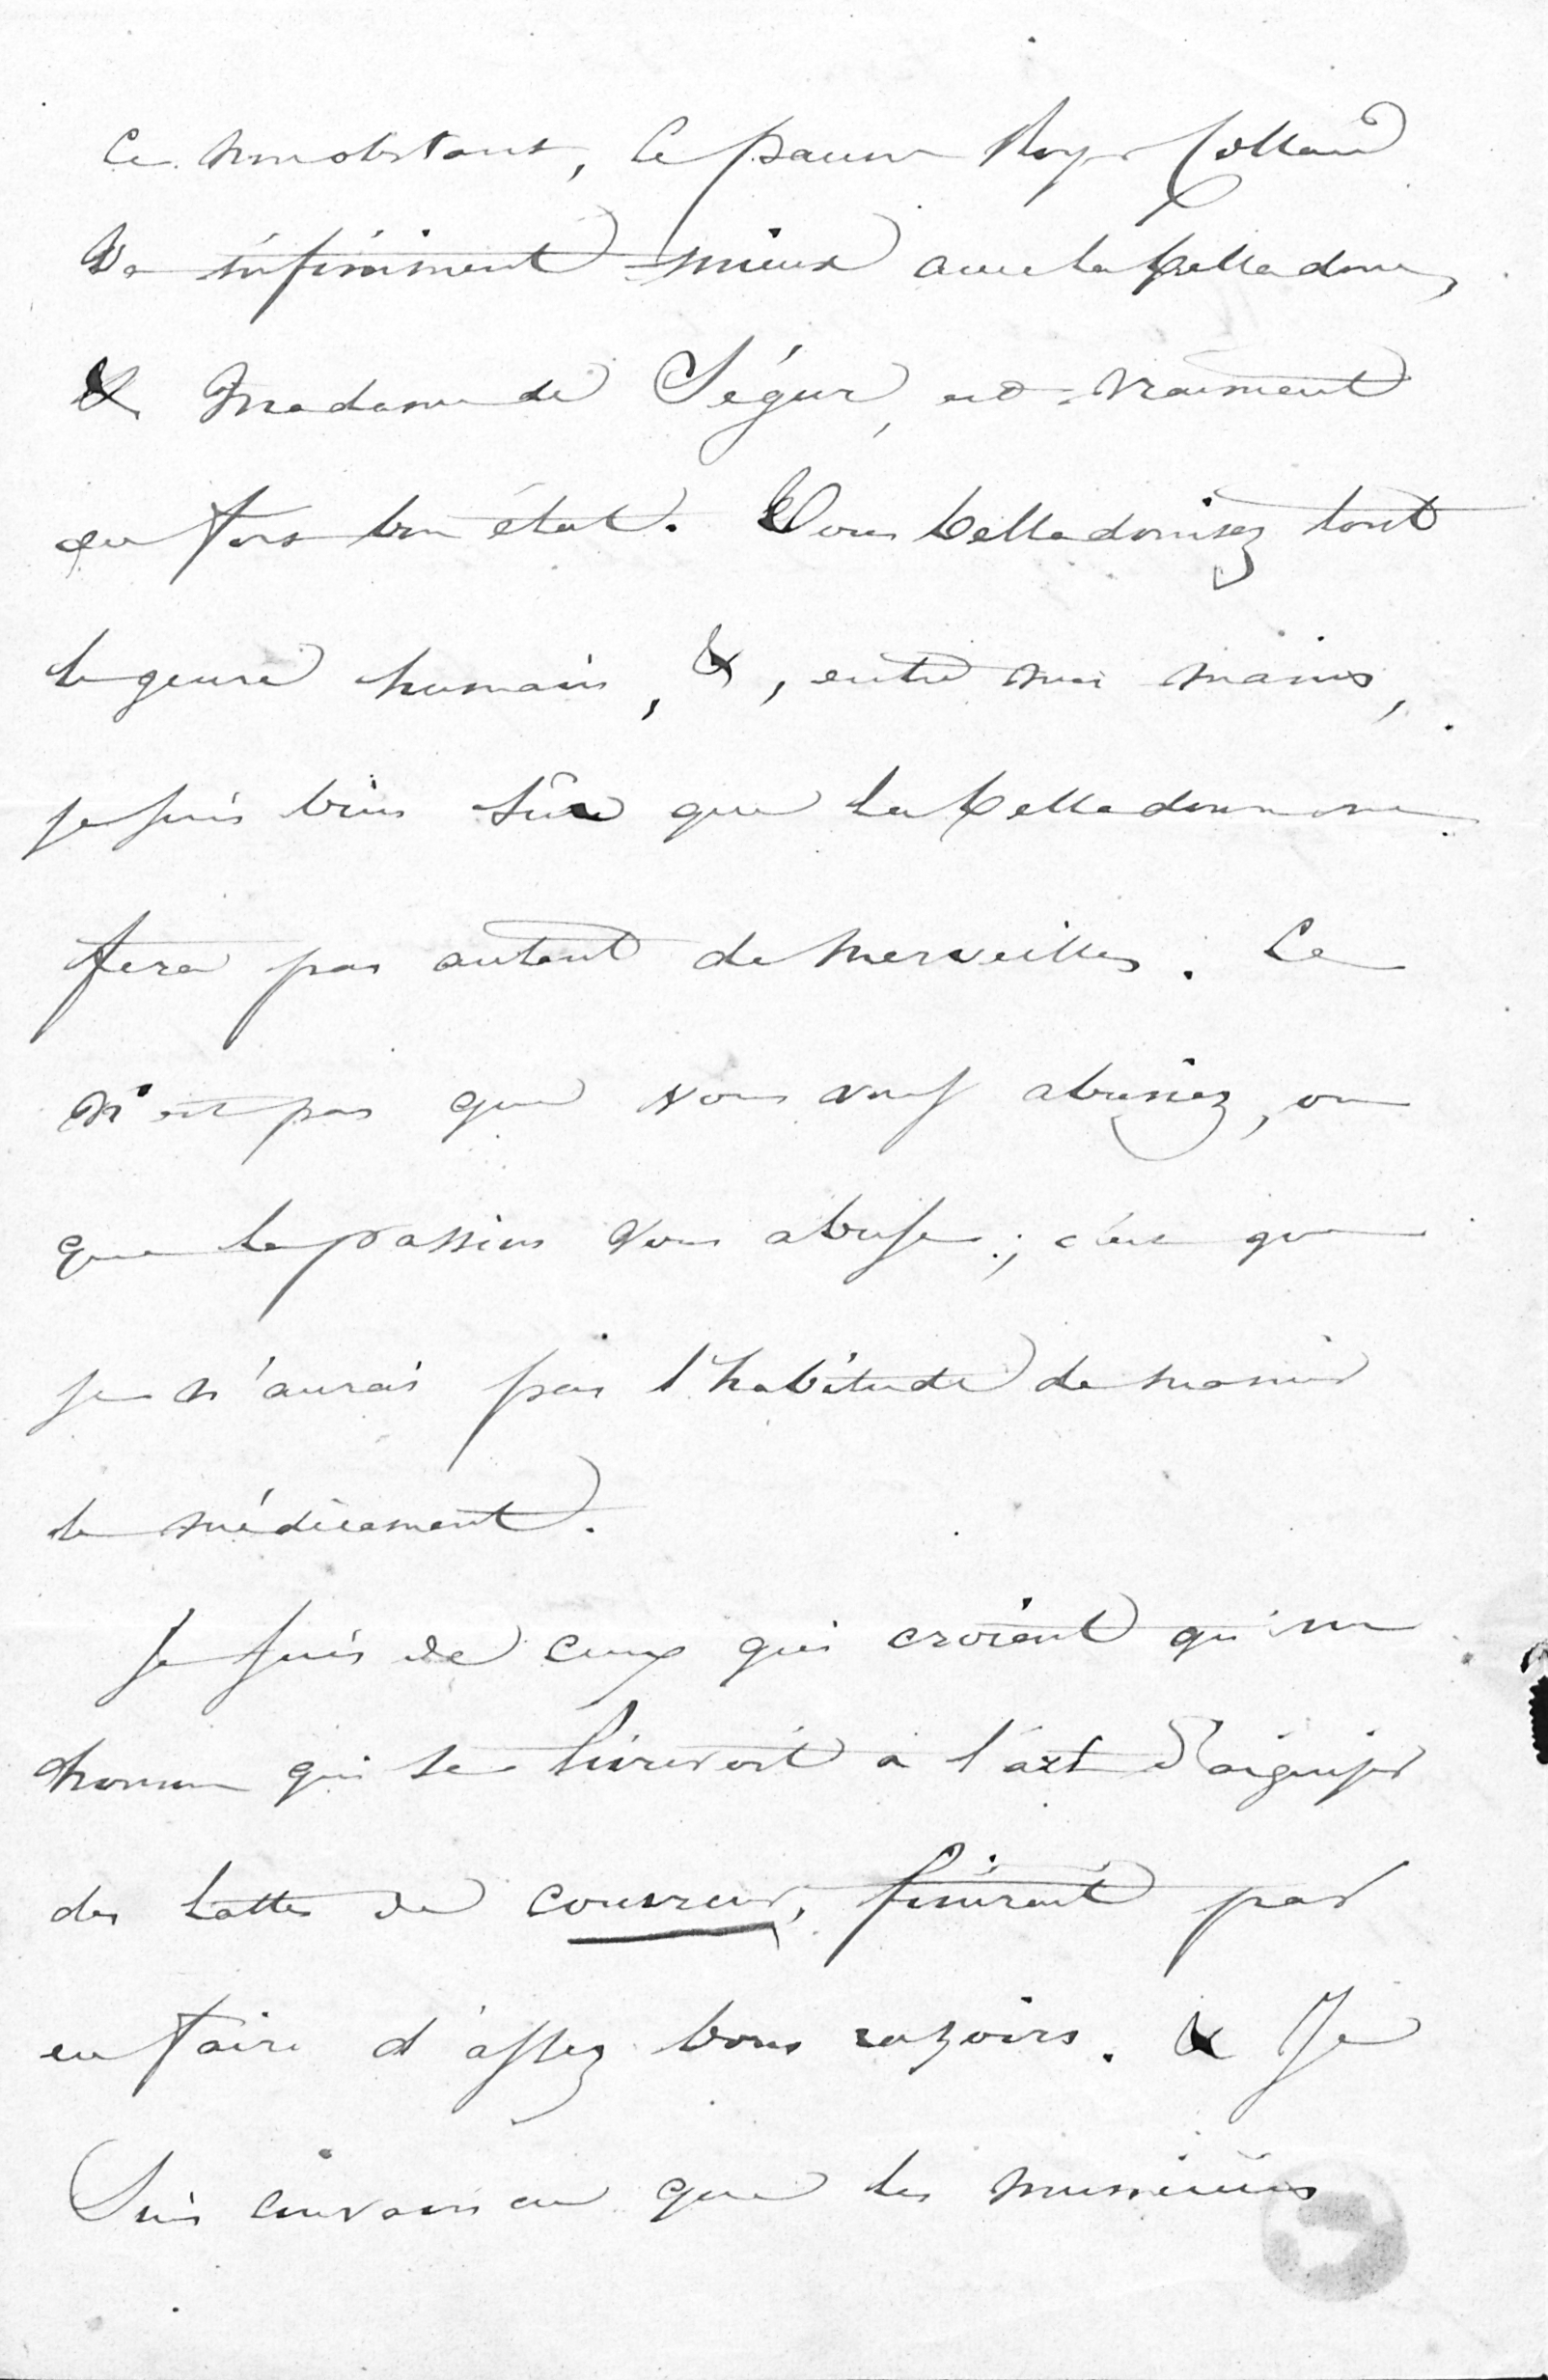 Ce nonobstant, le pauvre Royer Collard
Va infiniment mieux avec la belladone,
& Madame de Ségur, est vraiment
en fort bon état. Vous belladonisez tout
le genre humain, &, entre mes mains,
je suis bien sûre que la belladonne ne
fera pas autant de merveilles. Ce
n'est pas que vous vous abusiez, ou
que la passion vous abuse; c'est que
je n'aurais pas l'habitude de manier
le médicament.
Je suis de ceux qui croient qu'un
homme qui se livreroit à l'art d'aiguiser
des lattes de couvreur, finirait par
en faire d'assez bons razoirs. & Je
Suis convaincu que les musiciens